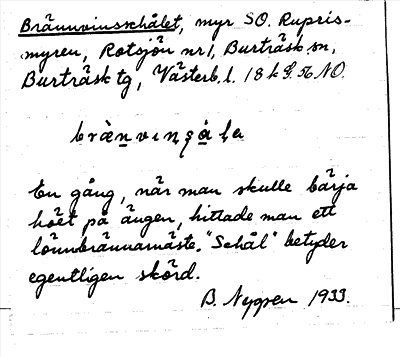 Brännvinsschålet, myr SO. Rupris-
myren, Rotsjön nr 1, Burträsk sn,
Burträsk tg, Västerb. l. 18 k S. 56 NO.
brän̲vinṣå̲ḷa
En gång, när man skulle bärja
höet på ängen, hittade man ett
lönnbrännarnäste. "Schål" betyder
egentligen skörd.
B. Nygren 1933.